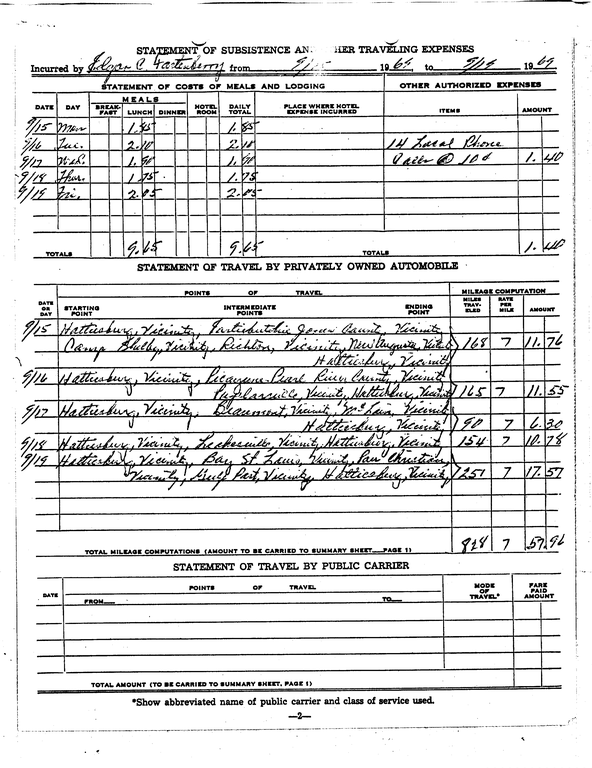 STATEMENT OF SUBSISTENCE AN HER TRAVELING EXPENSES
Incurred by Edgar C. Fortenberry from 9/15 1969 to 9/19 1969
STATEMENT OF COSTS OF MEALS AND LODGING OTHER AUTHORIZED EXPENSES
MEALS
DATE DAY BREAK-FAST LUNCH DINNER HOTEL ROOM DAILY TOTAL PLACE WHERE HOTEL EXPENSE INCURRED ITEMS AMOUNT
9/15 Mon 1.85 1.85
9/16 Tue. 2.10 2.10 14 Local Phone
9/17 Wed. 1.90 1.90 Calls @ 10¢ 1.40
9/18 Thur. 1.75 1.75
9/19 Fri. 2.05 2.05
TOTALS 9.65 9.65 TOTALS 1.40
STATEMENT OF TRAVEL BY PRIVATELY OWNED AUTOMOBILE
POINTS OF TRAVEL MILEAGE COMPUTATION
DATE OR DAY STARTING POINT INTERMEDIATE POINTS ENDING POINT MILES TRAV-ELED RATE PER MILE AMOUNT
9/15 Hattiesburg, Vicinity, Vicinity
Camp Shelby, Vicinity, Richton, Vicinity, New Augusta, 168 7 11.76
Hattiesburg, Vicinity
9/16 Hattiesburg, Vicinity, Picayune-Pearl River County, Vicinity
Poplarville, Vicinity, Hattiesburg, Vicinity 165 7 11.55
9/17 Hattiesburg, Vicinity, Beaumont, Vicinity, McLain, Vicinity
Hattiesburg, Vicinity 90 7 6.30
9/18 Hattiesburg, Vicinity, Leakesville, Vicinity, Hattiesburg, Vicinity 154 7 10.78
9/19 Hattiesburg, Vicinity, Bay St Louis, Vicinity, Pass Christian,
Vicinity, Gulf Port, Vicinity, Hattiesburg, Vicinity 251 7 17.57
TOTAL MILEAGE COMPUTATIONS (AMOUNT TO BE CARRIED TO SUMMARY SHEET—PAGE 1) 828 7 57.96
STATEMENT OF TRAVEL BY PUBLIC CARRIER
DATE POINTS OF TRAVEL MODE OF TRAVEL* FARE PAID AMOUNT
FROM TO
TOTAL AMOUNT (TO BE CARRIED TO SUMMARY SHEET, PAGE 1)
*Show abbreviated name of public carrier and class of service used.
—2—